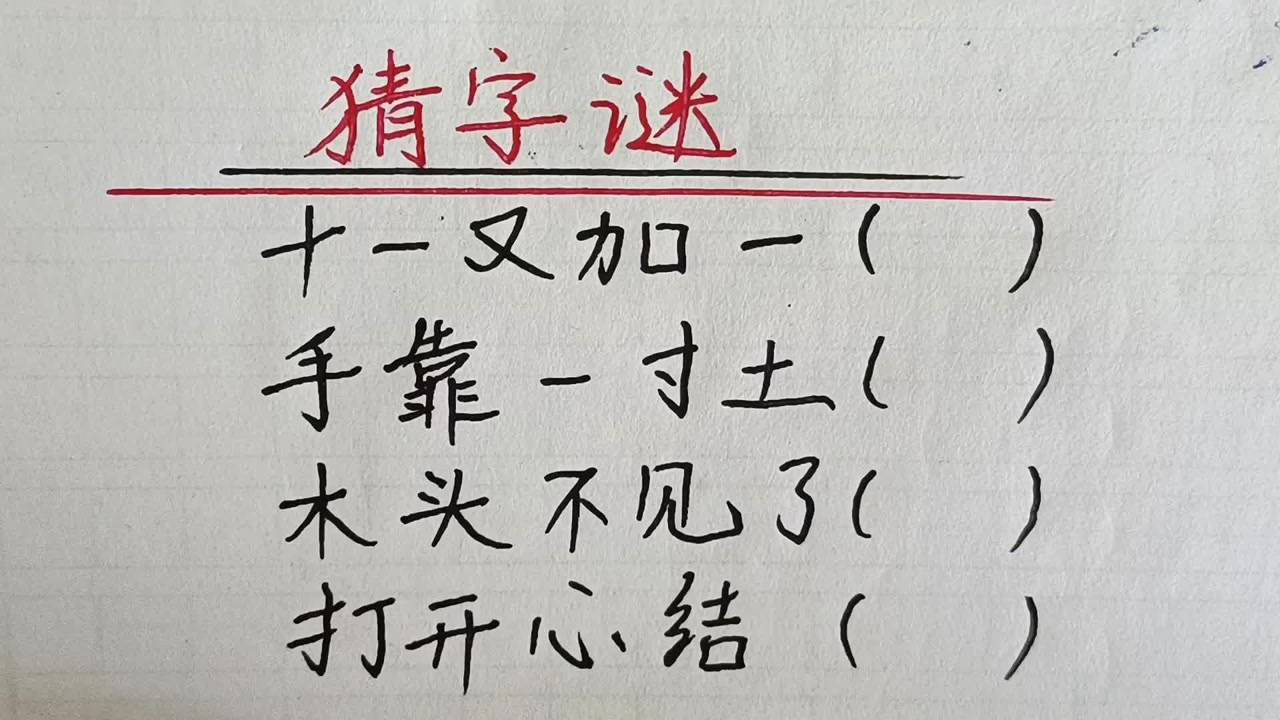 猜字谜
十一又加一( )
手靠一寸土( )
木头不见了( )
打开心结( )